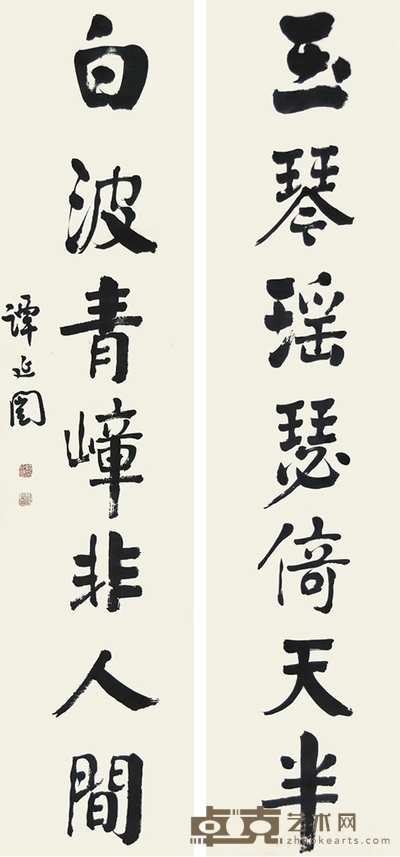 玉琴瑶瑟倚天半
白波青嶂非人間
譚延闓
卓克艺术网
zhuokearts.com